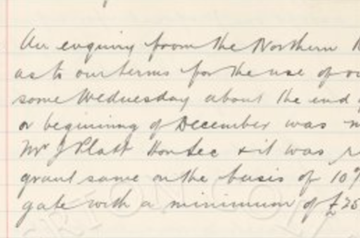 An enquiry from the Northern
as to our terms for the use of
some Wednesday about the end
or beginning of December was
Mr J Platt Hon Sec & it was
grant same on the basis of 10%
gate with a minimum of £25